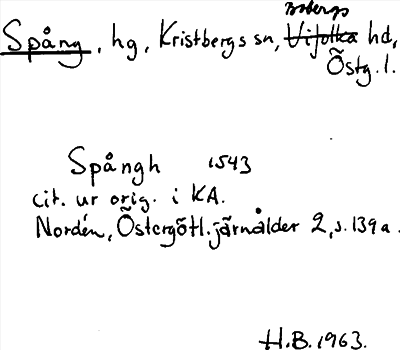 Bobergs
Spång, hg, Kristbergs sn, Vifolka hd,
Östg. l.
Spångh 1543
cit. ur orig. i KA.
Nordén, Östergötl. järnålder 2, s. 139 a.
H.B. 1963.